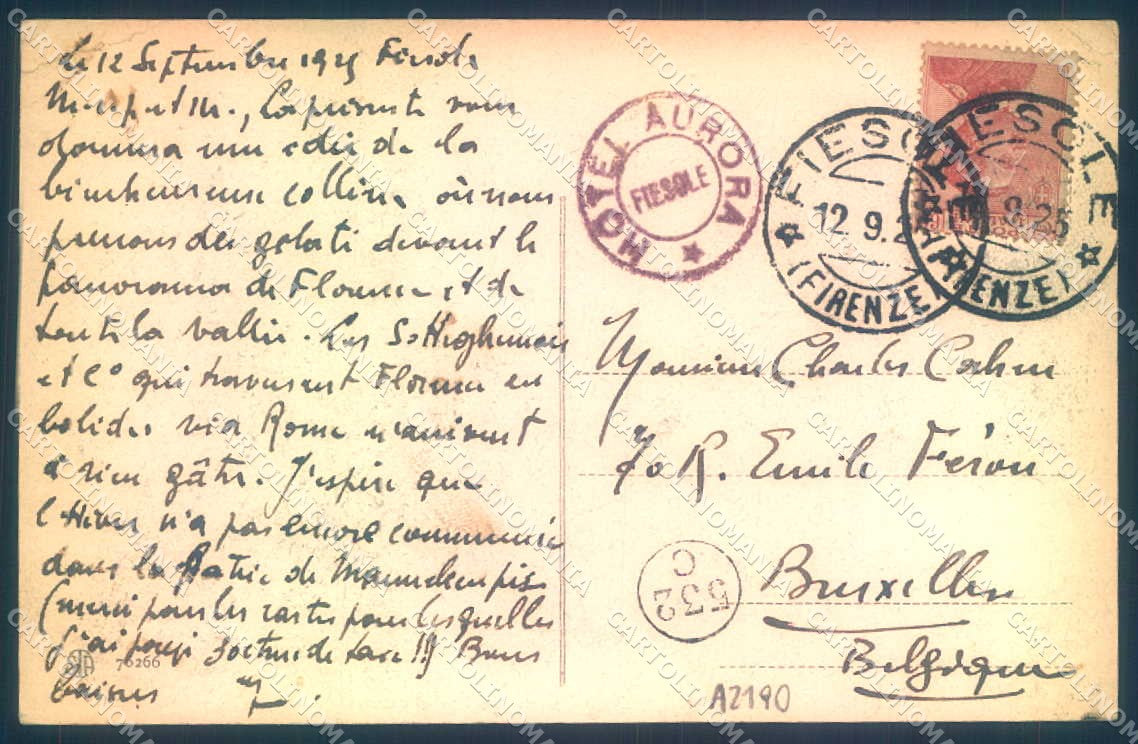 Le 12 Septembre 1925 Fiesole
M. , La présente vous
donnera une idée de la
bienheureuse colline où nous
prenons des gelati devant le
panorama de Florence et de
toute la vallée. Les
et Co qui traversent Florence en
bolides via Rome n'arrivent
à rien gâter. J'espère que
l'Hiver n'a pas encore commencé
dans la Patrie de Manneken pis
(merci pour les cartes pour lesquelles
j'ai payé de taxe !!) Bons
baisers
76266
HOTEL AURORA
FIESOLE
FIESOLE
12.9.2
(FIRENZE)
FIESOLE
9.25
(FIRENZE)
Monsieur Charles Cahn
70 R. Emile Féron
Bruxelles
Belgique
532
C
A2190
CARTOLINOMANIA